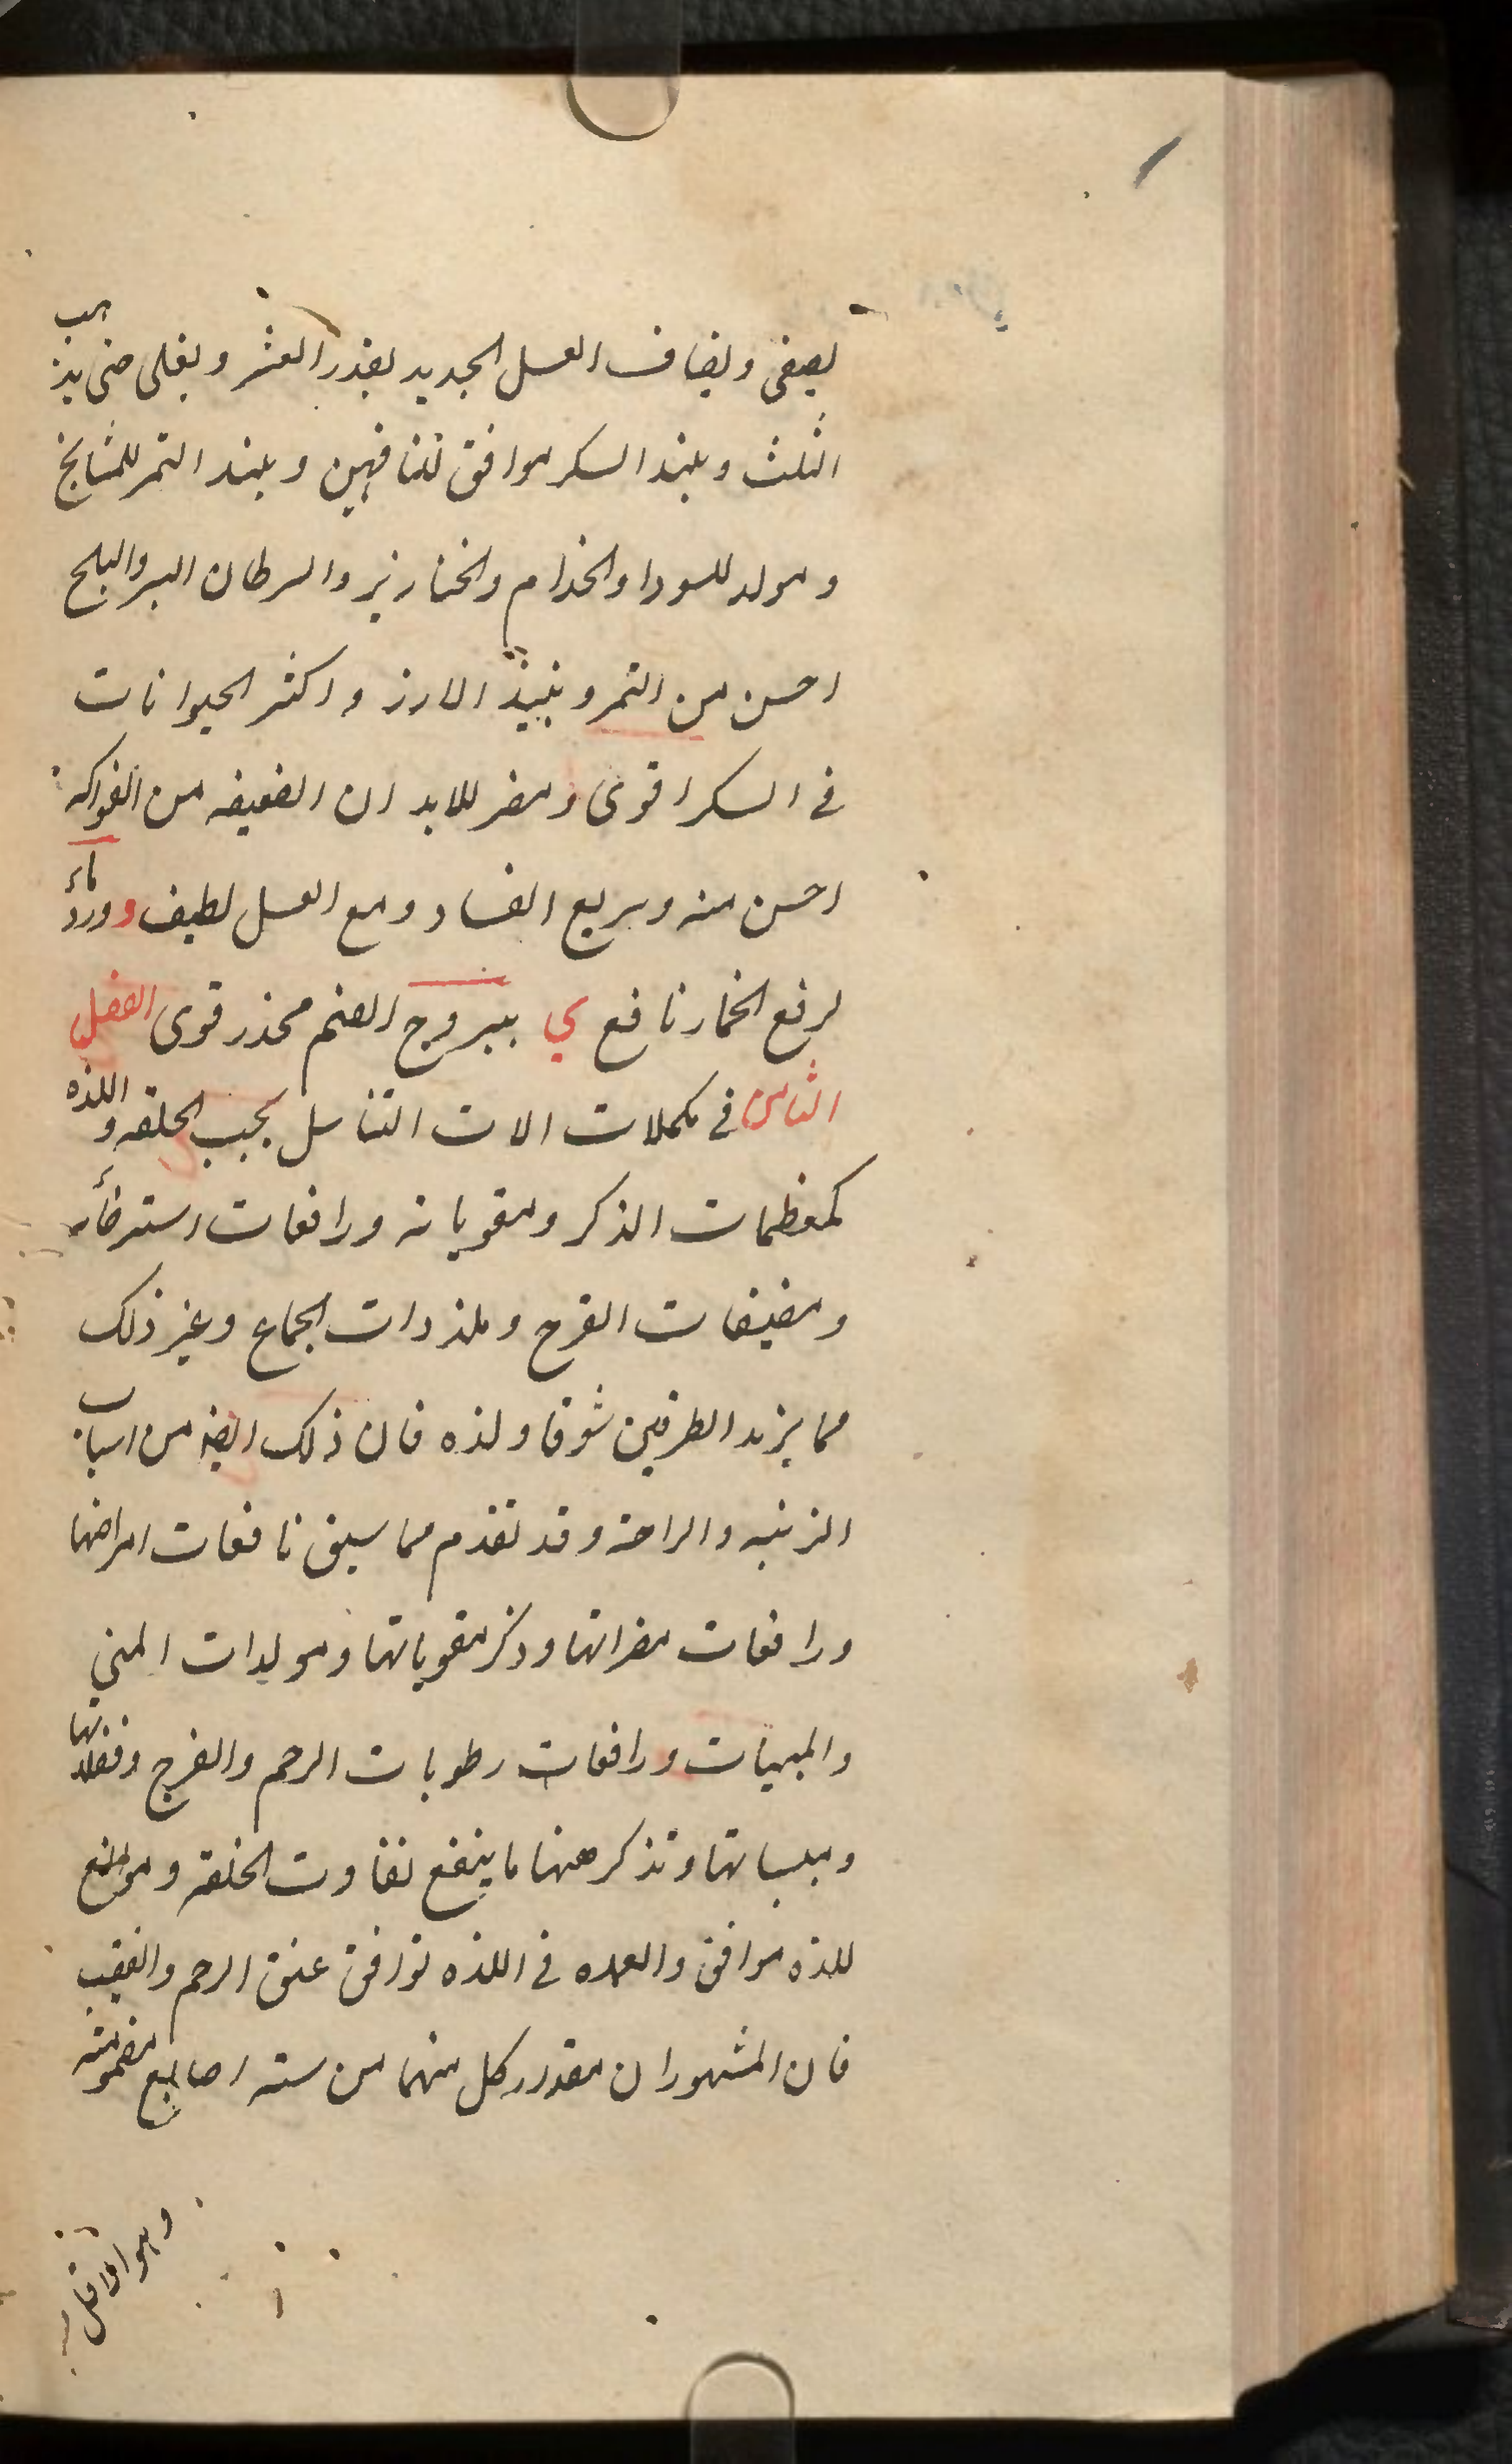 يصفى ويضاف العسل الجديد بقدر العشر ويغلى حتى يذهب
الثلث ونبيذ السكر موافق للناقهين ونبيذ التمر للمشايخ
ومولد للسودا والجذام والخنازير والسرطان البسر والبلح
احسن من التمر ونبيذ الارز واكثر الحيوانات
في السكر اقوى ومضر للابدان الضعيفه من الفواكه
احسن منه وسريع الفساد ومع العسل لطيف وورد ماء
لرفع الخمار نافع ي يبروج الصنم مخدر قوى الفصل
الثامن في مكملات الات التناسل بحسب الخلقه واللذه
كمعظمات الذكر ومقوياته ورافعات استرخائه
ومضيقات الفرج وملذذات الجماع وغير ذلك
مما يزيد الطرفين شوقا ولذه فان ذلك ايضا من اسباب
الزينه والراحة وقد تقدم مما سبق نافعات امراضها
ورافعات مضراتها وذكر مقوياتها ومولدات المني
والمبهيات ورافعات رطوبات الرحم والفرج وفضلاتها
ويبساتها وتذكر ههنا ما ينفع تفاوت الخلقة ومواضع
للذه موافق والعمده في اللذه توافق عنق الرحم والقضيب
فان المشهور ان مقدار كل منهما من سته اصابع مضمومة
وهو الاقل